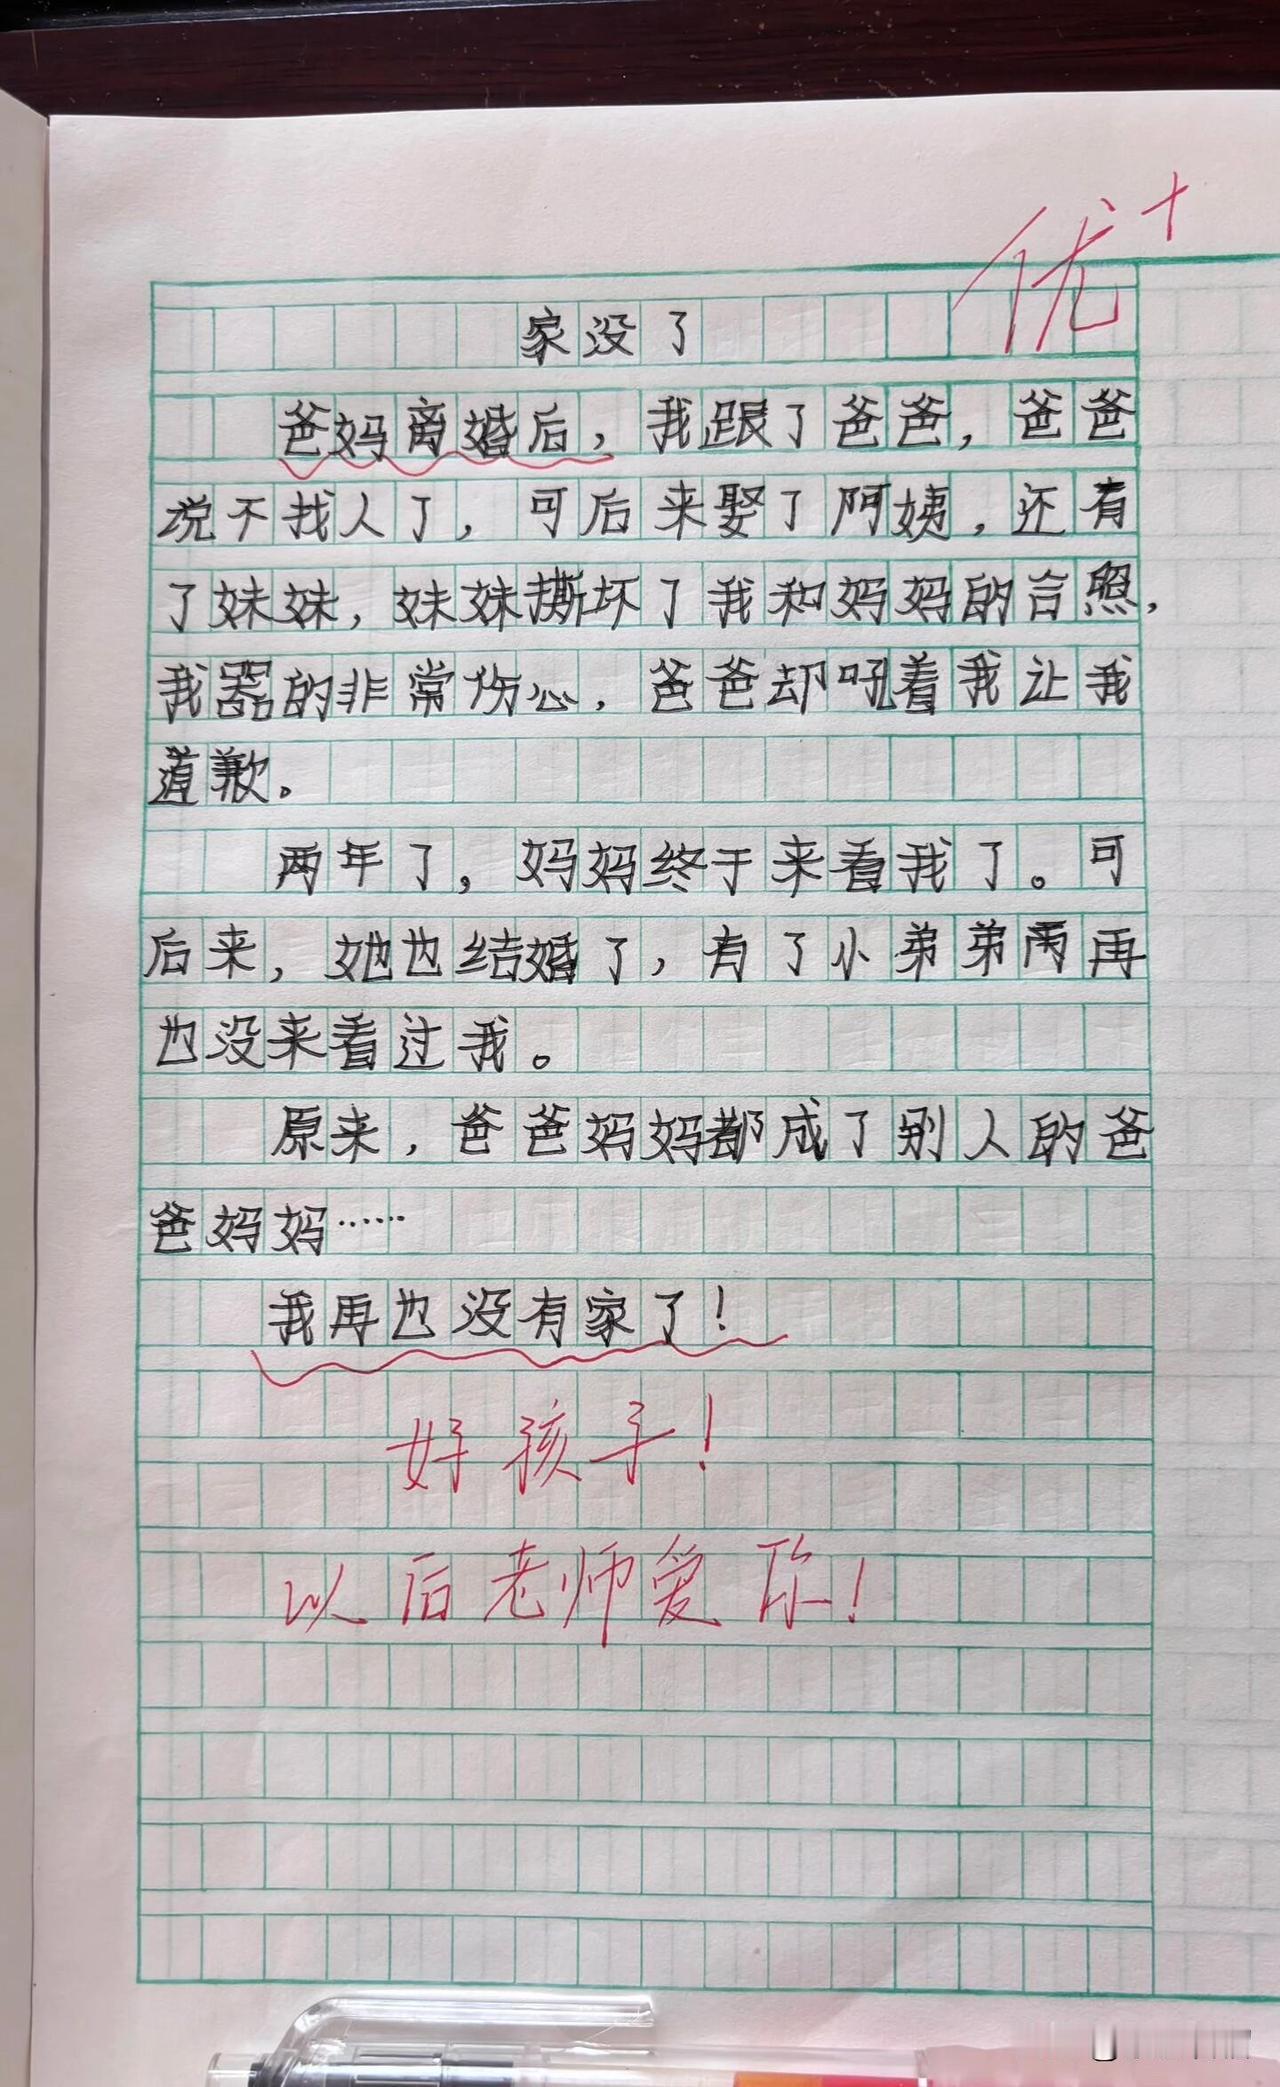 优+
家没了
爸妈离婚后，我跟了爸爸，爸爸
说不找人了，可后来娶了阿姨，还有
了妹妹，妹妹撕坏了我和妈妈的合照，
我器的非常伤心，爸爸却吼着我让我
道歉。
两年了，妈妈终于来看我了。可
后来，她也结婚了，有了小弟弟两再
也没来看过我。
原来，爸爸妈妈都成了别人的爸
爸妈妈……
我再也没有家了！
好孩子！
以后老师爱你！